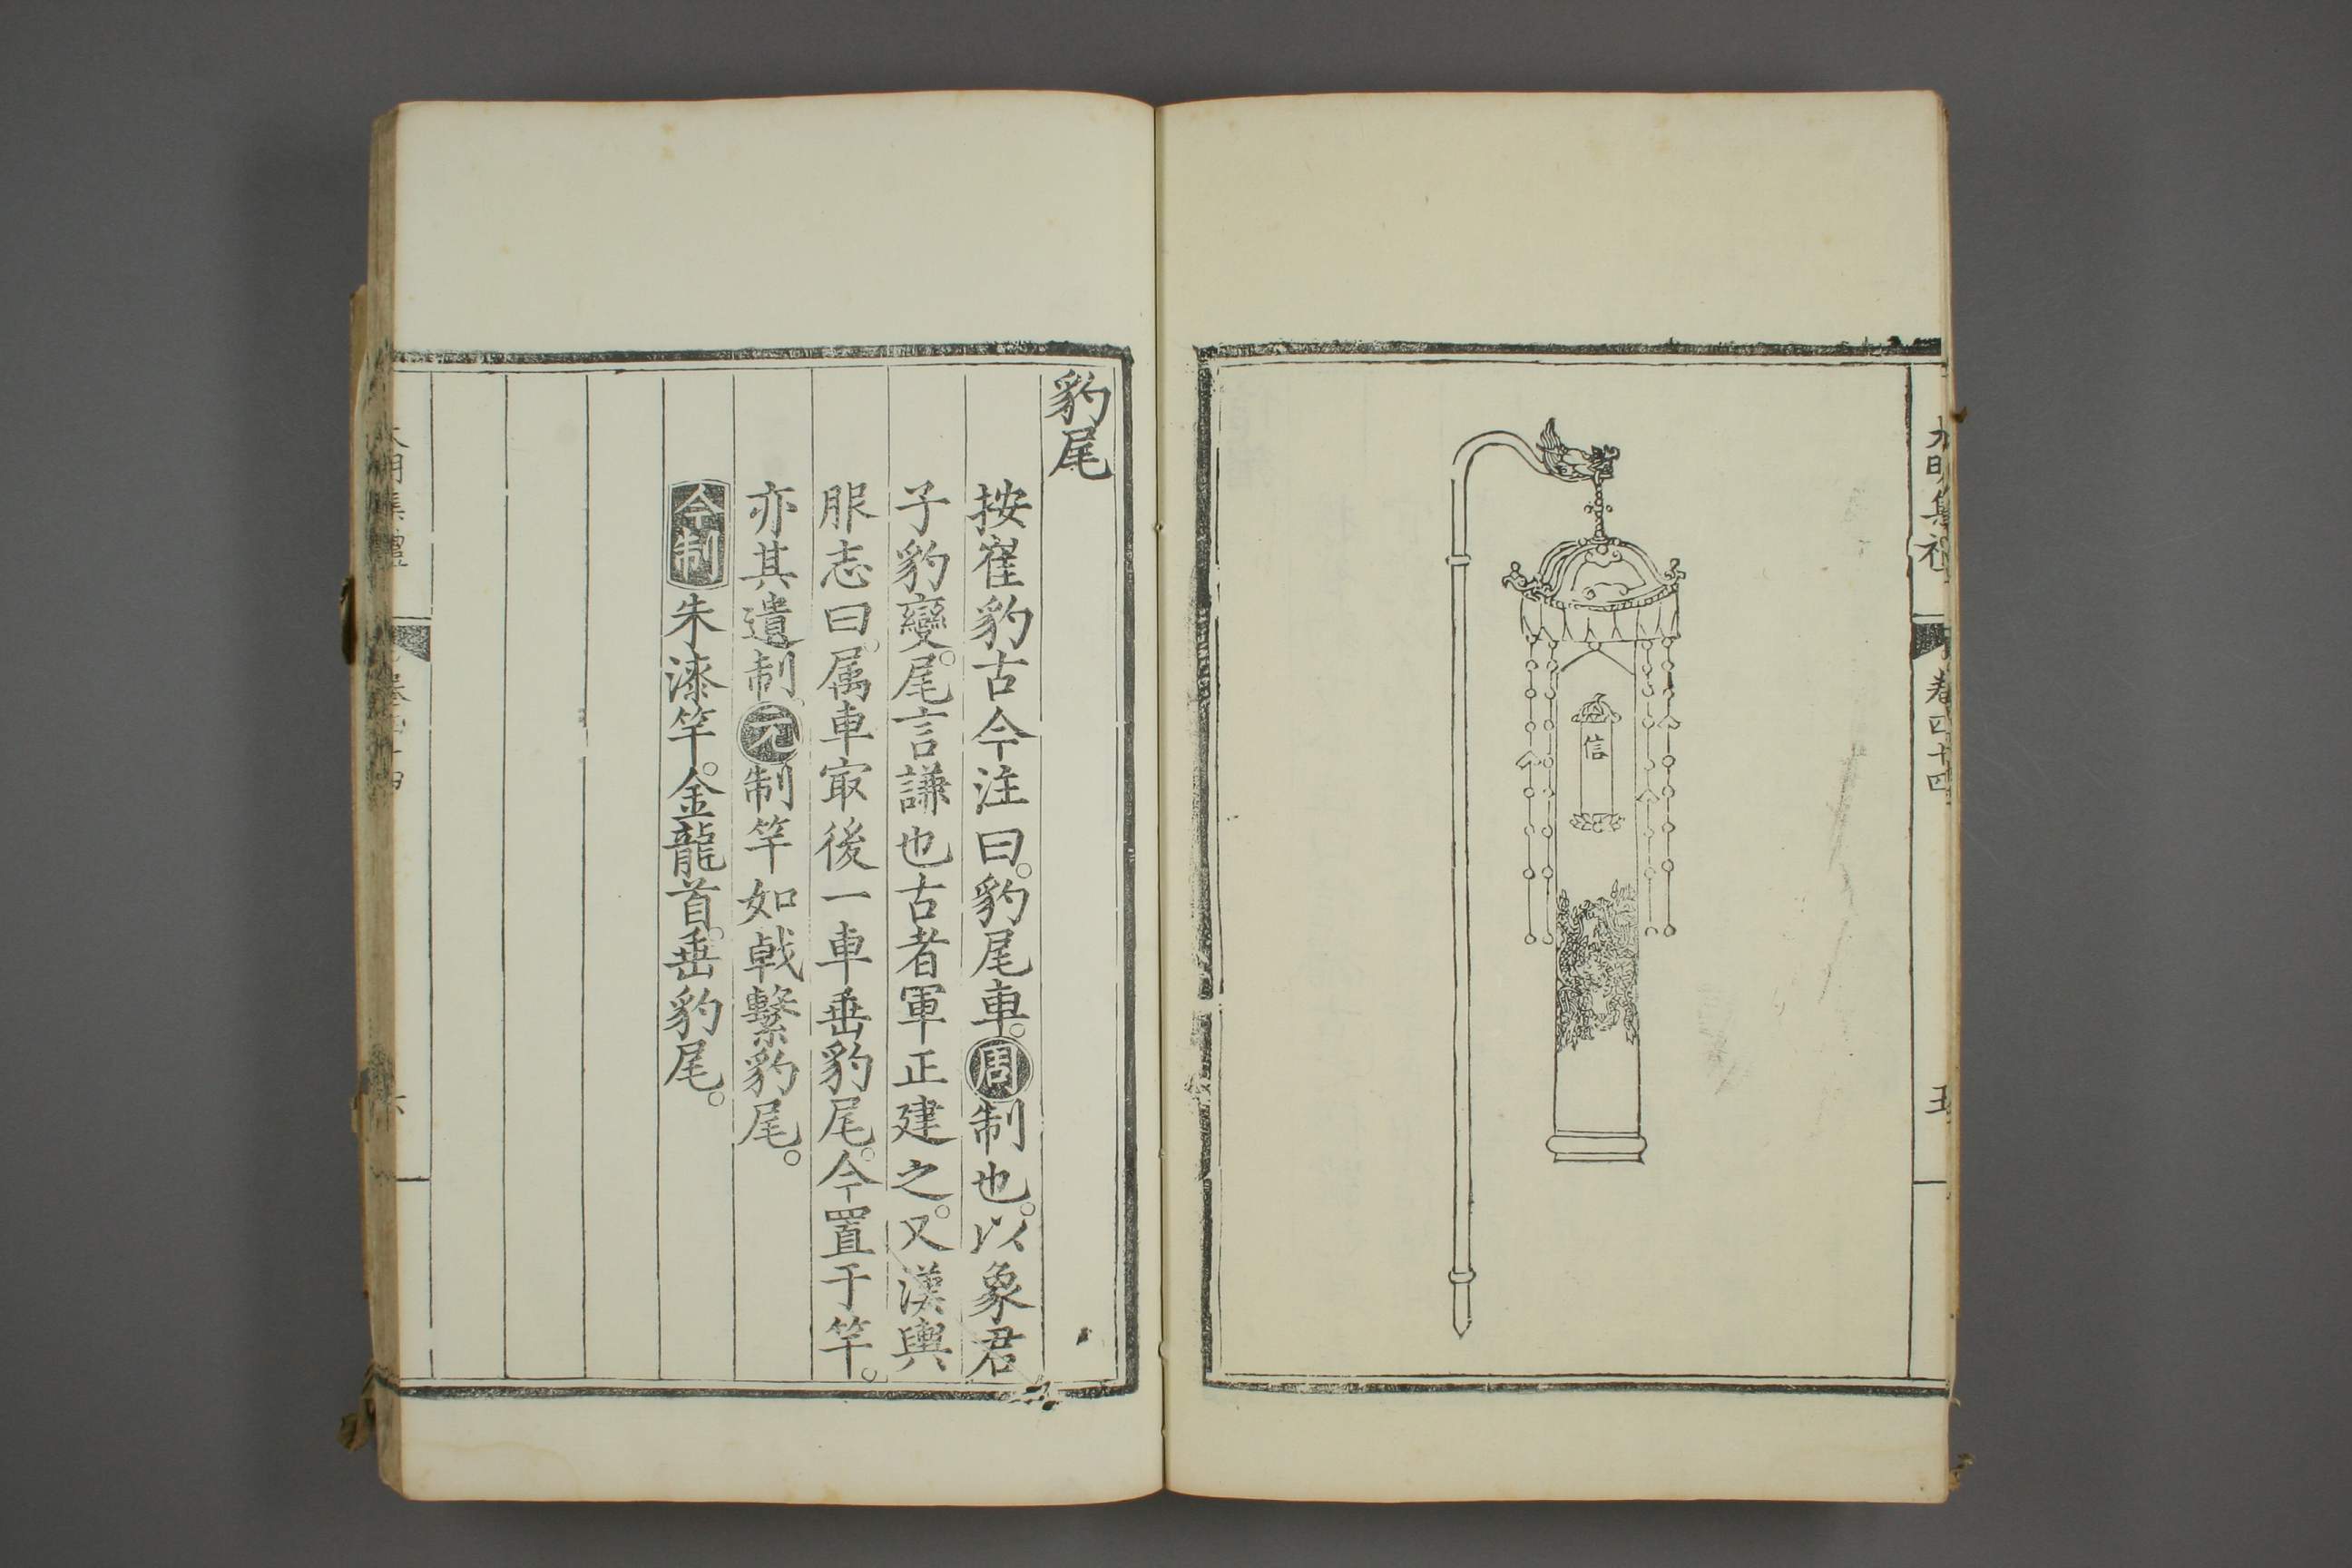 大明集禮 卷四十四 五
信
豹尾
按崔豹古今注曰。豹尾車。周制也。以象君
子豹變。尾言謙也古者軍正建之。又漢輿
服志曰。属車㝡後一車垂豹尾。今置于竿。
亦其遺制。元制竿如戟繫豹尾。
今制朱漆竿。金龍首。垂豹尾。
大明集禮 卷四十四 六